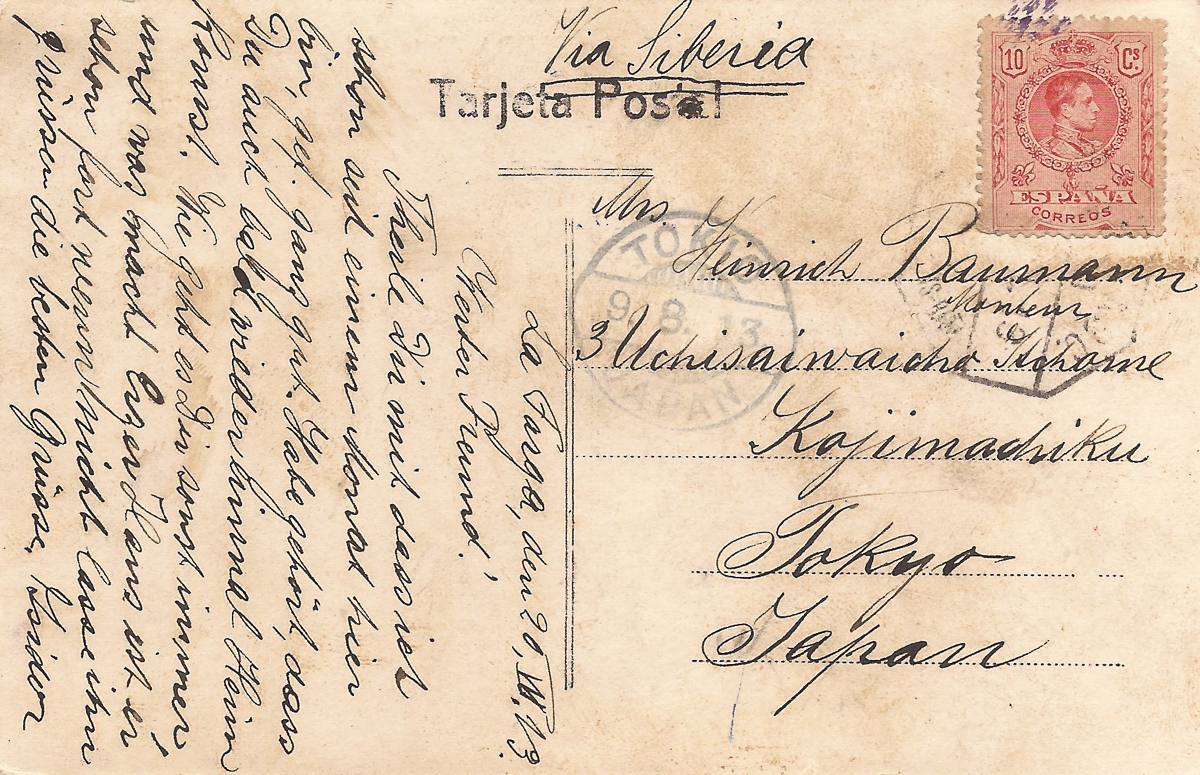 Via Siberia
Tarjeta Postal
10 Cs
ESPAÑA
CORREOS
TOKIO
9.8.13
JAPAN
Mrs.
Heinrich Baumann
Monteur
3 Uchisaiwaicho Itchome
Kojimachiku
Tokyo
Japan
La Farga, den 20. VII. 13.
Werter Freund!
Theile Dir mit dass ich
schon seit einem Monat hier
bin, gef. ganz gut. Habe gehört, dass
Du auch bald wieder einmal Heim
kommst. Wie geht es Dir sonst immer
und was macht Hans ist er
schon fort wenn nicht lasse ihn
grüssen die besten Grüsse, Isidor